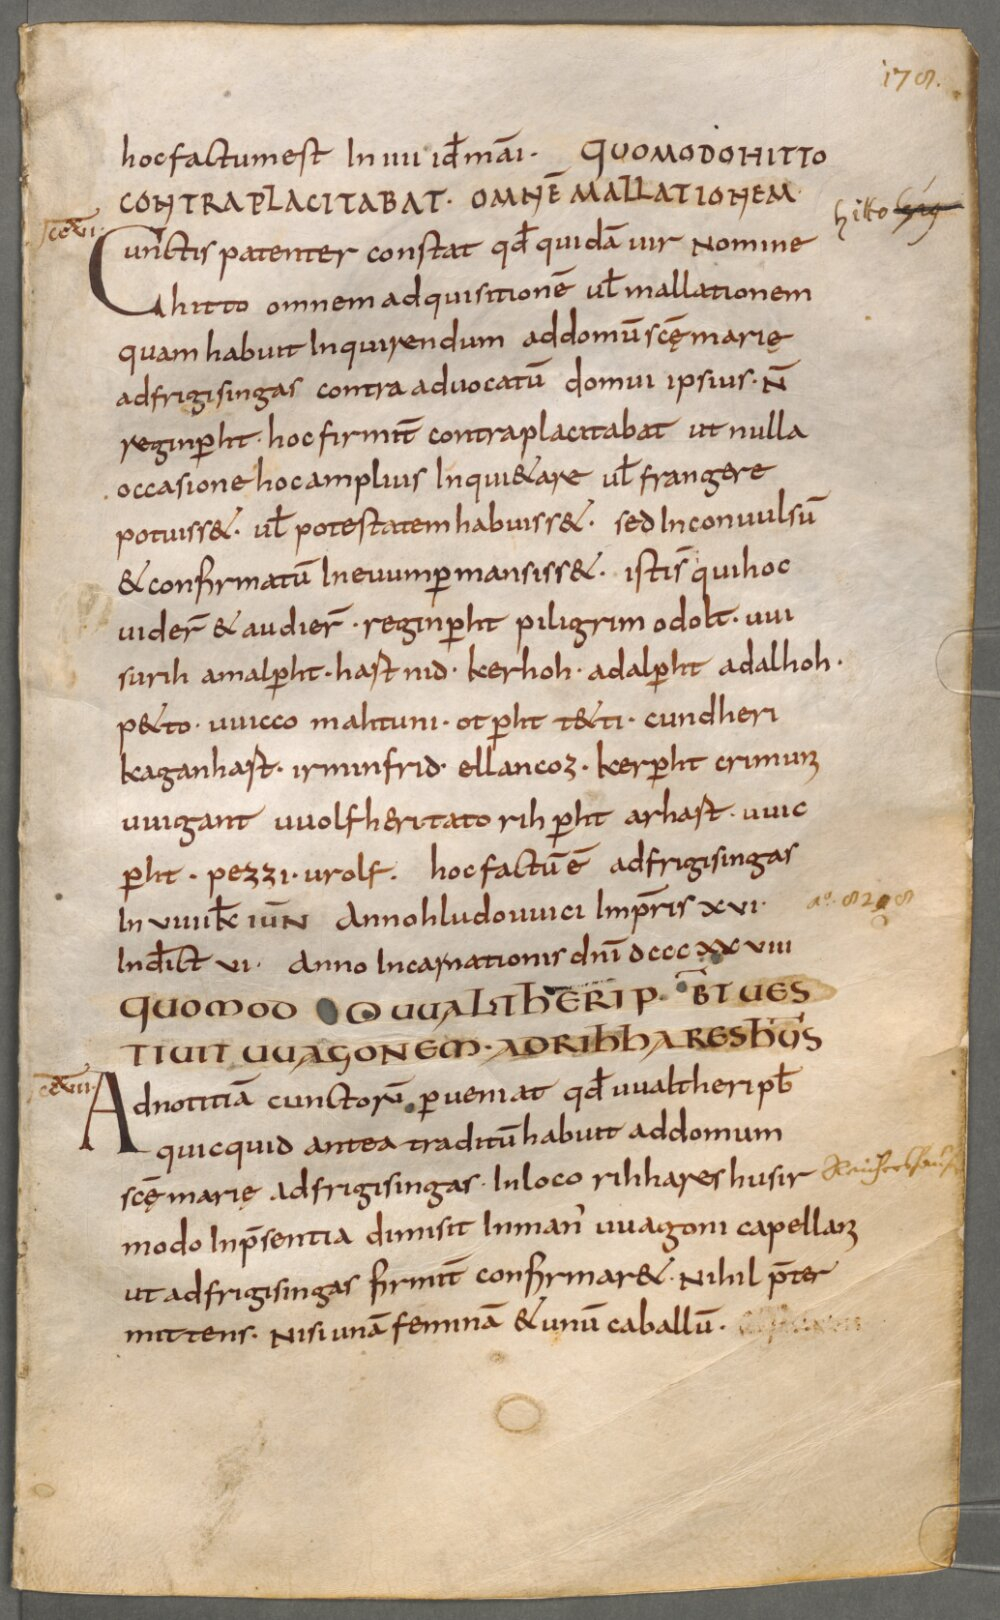 178.
hocfactumest In uii id̄ māi · QUOMODO HITTO
CONTRAPLACITABAT · OMNĒ MALLATIONEM ·
hitto
ccxvi·
Cunctis patenter constat qd̄ quidā uir Nomine
hitto omnem adquisitionē ul̄ mallationem
quam habuit Inquirendum addomū scę̄ marię
adfrigisingas contra aduocatū domui ipsius · N̄
reginp̄ht · hoc firmit̄ contraplacitabat ut nulla
occasione hoc amplius Inqui&are ul̄ frangere
potuiss& · ul̄ potestatem habuiss& · sed Inconuulsū
& confirmatū Ineuump̄mansiss& · istis̄ qui hoc
uider̄ & audier̄ · reginp̄ht piligrim odolt · uui
surih amalp̄ht · hast nid · kerhoh · adalp̄ht adalhoh ·
p&to · uuicco mahtuni · ot p̄ht t&ti · cundheri
kaganhast · irminfrid · ellancoz · kerp̄ht crimun
uuigant uuolfheri tato rih p̄ht arhast · uuic
p̄ht · pezzi · urolf · hoc factū ē adfrigisingas
In viiii kl̄ iūN Anno hludouuici Imp̄ris xvi ·
a͞o. 828
Ind̄ict vi · Anno Incarnationis dn̄i dccc xxviii
QUOMODO UUALTHERI P · B̄T UES
TIUIT UUAGONEM · AD RIHHARESHUS
ccxvii·
Ad notitiā cunctorū p̄ueniat qd̄ uualtheri pb̄t
quicquid antea traditū habuit addomum
scę̄ marię adfrigisingas · Inloco rihhares husir
modo Inp̄sentia dimisit Inman' uuagoni capellan
ut adfrigisingas firmit̄ confirmar& · Nihil p̄ter
mittens · Nisi unā feminā & unū caballū ·